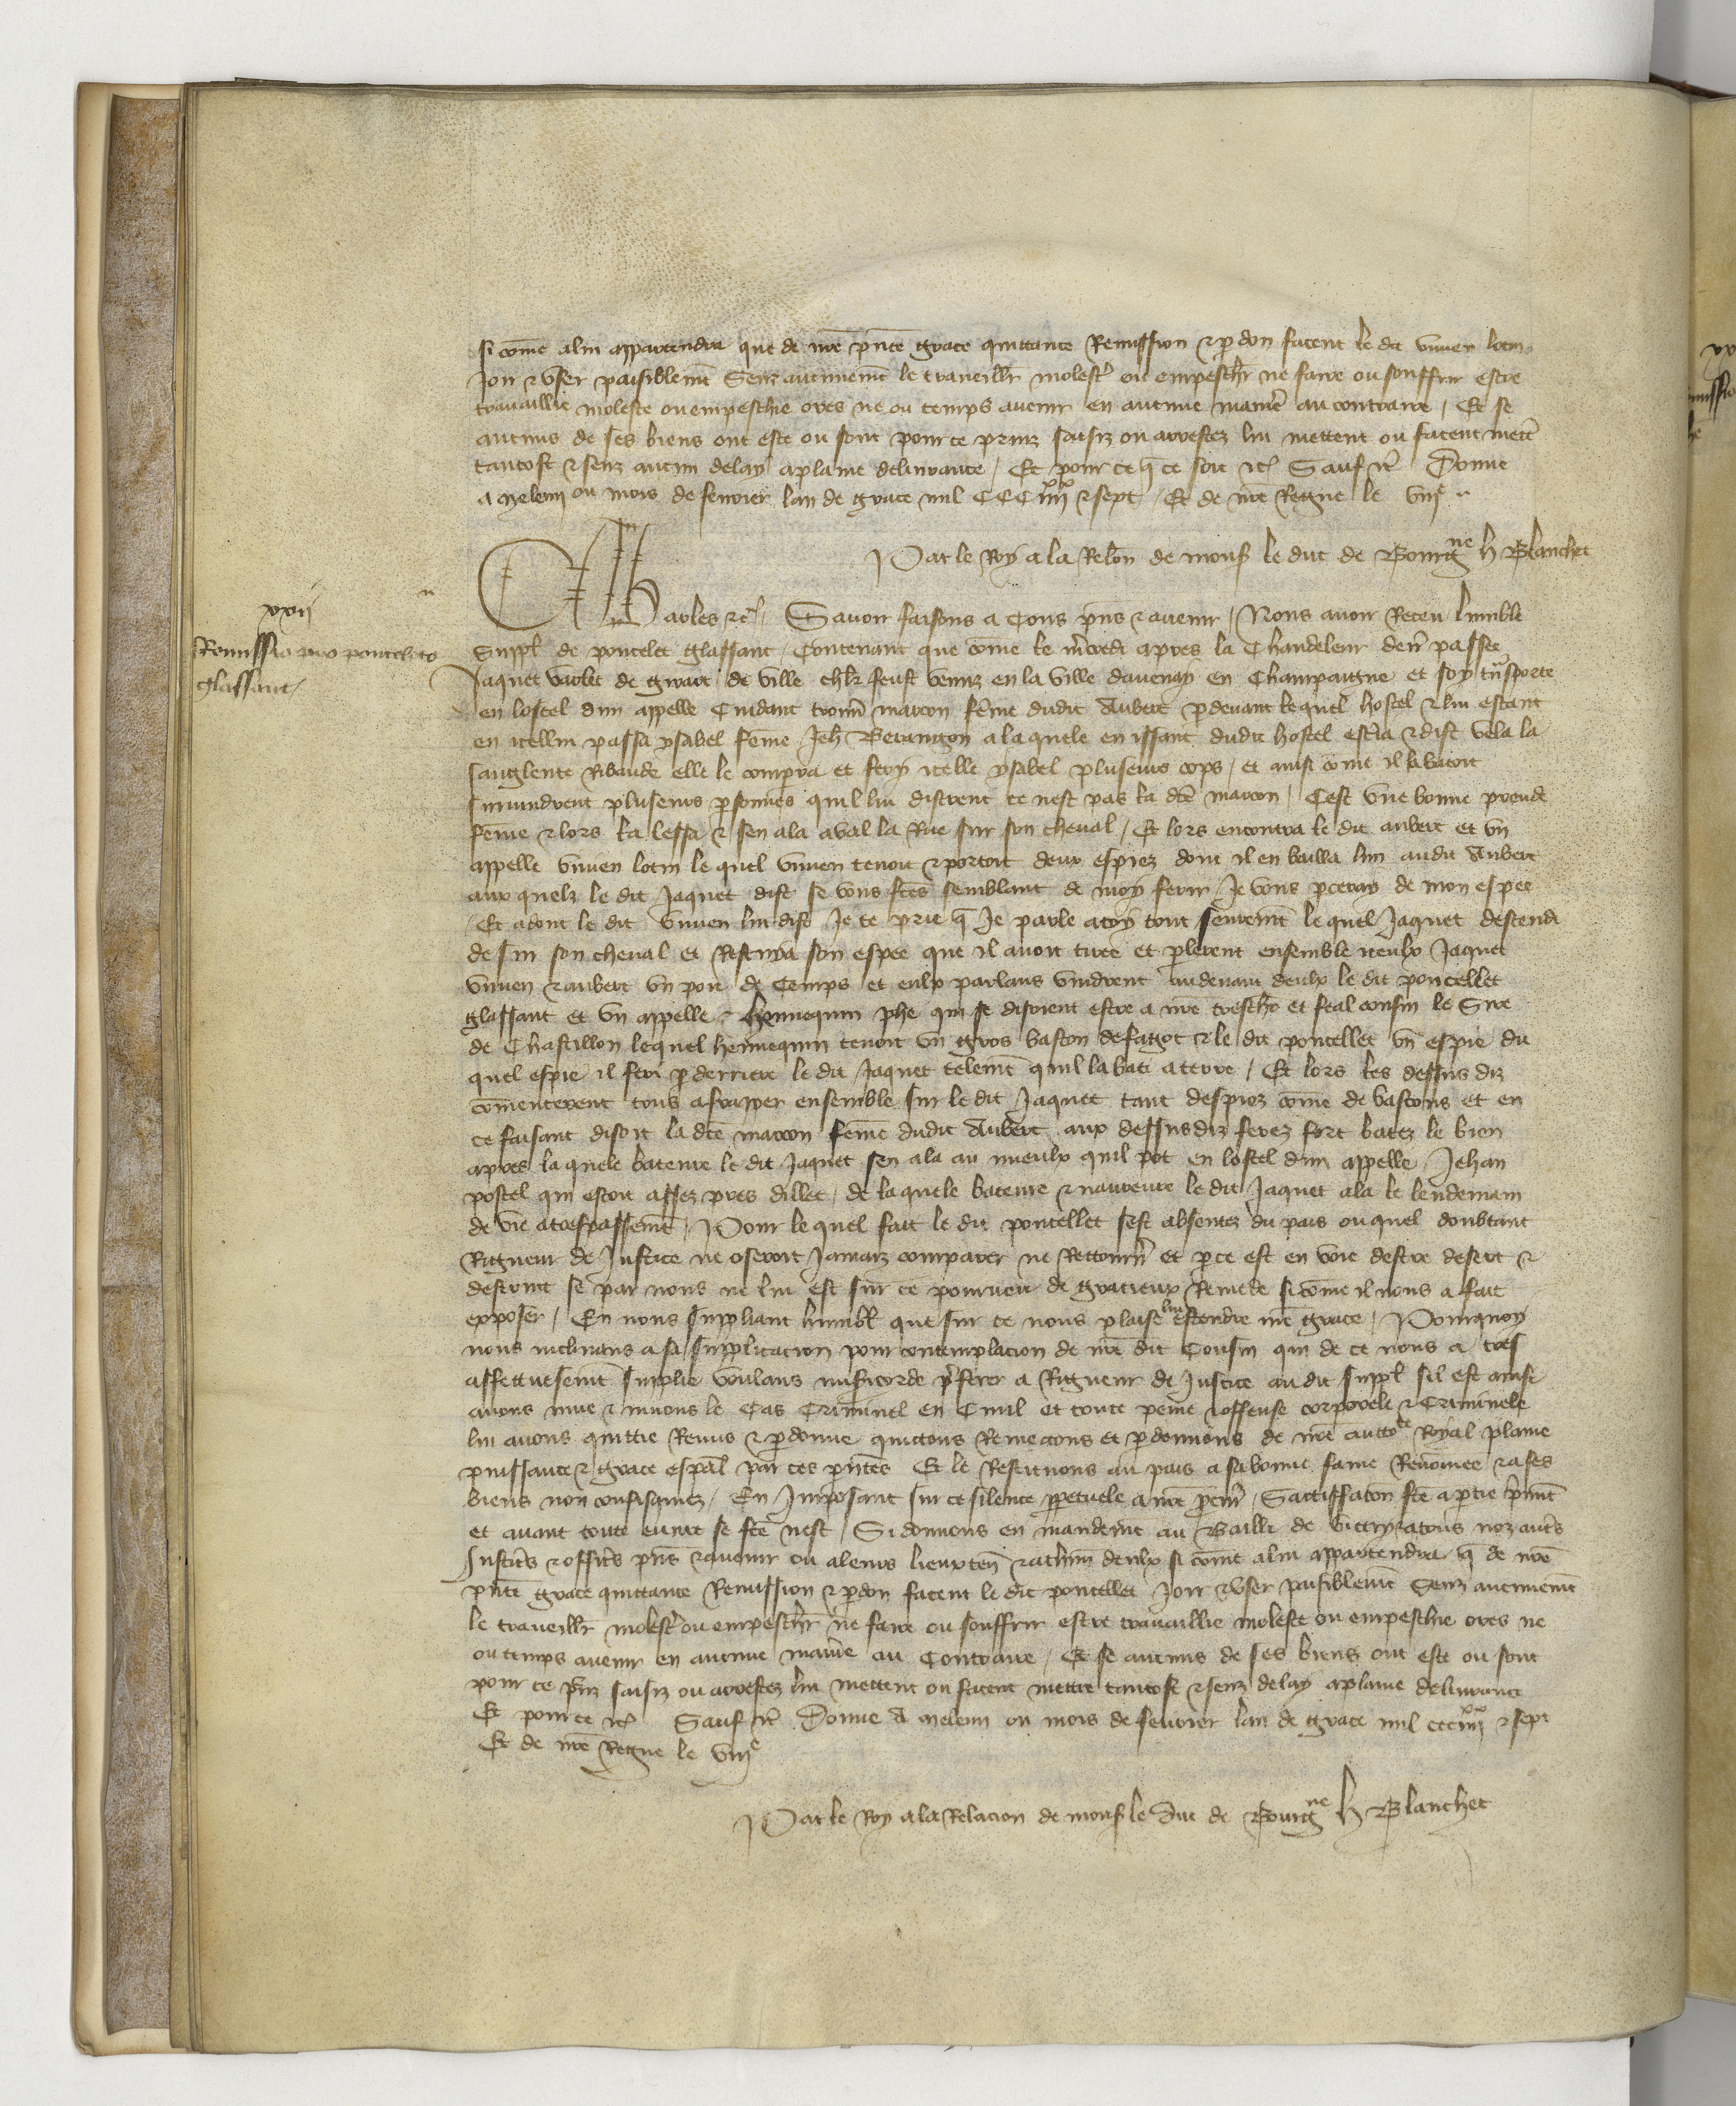 si cōme a lui appartendra que de nr̄e pn̄te grace quittance Remission & pdon facent le dit vivien lotin
Joir & vser paisiblemēt Senz aucunemēt le traveillr molestr ou empeschr ne faire ou souffrir estre
travaillie moleste ou empeschie ores ne ou temps avenir en aucune manie au contraire / Et se
aucuns de ses biens ont este ou sont pour ce prinz saisiz ou arrestez lui mettent ou facent mettr
tantost & senz aucun delay a plaine delivrance / Et pour ce q̄ ce soit etc Sauf etc Donne
a Meleun ou mois de fevrier lan de grace mil CCC iiijxx & sept / Et de nr̄e Regne le viije
Par le Roy a la Relōn de mons le duc de Bourgne H Blanchet
xxij
Remissio pro ponceleto
glassant
Charles etc Savoir faisons a Tous pn̄s & avenir / Nous avoir Receu lumble
Suppl de poncelet glassant / Contenant que cōme le mercredi apres la Chandeleur denr passee
Jaquet varlet de girart de ville chlr feust venuz en la ville davenay en Champaigne et soy trāsporte
en lostel dun appelle Cuidant trouvr marcon fēme dudit Aubert pdevant lequel hostel & lui estant
en icellui passa ysabel fēme Jeh Berangon a laquele en issant dudit hostel escria & dist vela la
sanglente Ribaude elle le comperra et fery icelle ysabel plusieurs cops / et ainsi cōme il la batoit
survindrent plusieurs psonnes qui lui distrent ce nest pas la dc̄e marcon / Cest vne bonne preude
feme & lors la lessa & sen ala aval la Rue sur son cheval / Et lors encontra le dit aubert et vn
appelle vivien lotin le quel vivien tenoit & portoit deux espiez dont il en bailla lun audit Aubert
aux quelz le dit Jaquet dist se vous ftes semblant de moy ferir / Je vous pceray de mon espee
/ Et adont le dit vivien lui dist Je te prie q̄ Je parle a toy tout seuremēt le quel Jaquet descendi
de sur son cheval et Restuya son espee que il avoit tiree et plerent ensemble iceulx Jaquet
vivien & aubert vn pou de Temps et eulx parlans vindrent audevant deulx le dit poncellet
glassant et vn appelle hennequin phe qui se disoient estre a nr̄e treschr et feal cousin le Sire
de Chastillon lequel hennequin tenoit vn gros baston de fagot & le dit poncellet vn espie du
quel espie il feri p derriere le dit Jaquet telemēt quil labati a terre / Et lors les dessus diz
cōmencerent tous a fraper ensemble sur le dit Jaquet tant despiez cōme de bastons et en
ce faisant disoit la dc̄e marcon fēme dudit Aubert aux dessusdiz ferez fort batez le bien
apres la quele bateure le dit Jaquet sen ala au mieulx quil pot en lostel dun appelle Jehan
postel qui estoit assez pres dillec / de laquele bateure & navreure le dit Jaquet ala le lendemain
de vie a trespassemēt / Pour le quel fait le dit poncellet sest absentez du pais ouquel doubtant
Rigueur de Justice ne oseroit Jamaiz comparer ne Rettournr et p ce est en voie destre desert &
destruit se par nous ne lui est sur ce pourveu de gracieux Remede si cōme il nous a fait
exposer / En nous suppliant humbl que sur ce nous plaise lui estendre nr̄e grace / Pourquoy
nous inclinans a sa supplicacion pour contemplacion de nr̄e dit Cousin qui de ce nous a tres
affectueusemt supplie voulans misericorde pferer a Rigueur de Justice au dit suppl sil est ainsi
avons mue & muons le Cas Criminel en Civil et toute peine & offense corporele & Criminele
lui avons quittie Remis & pdonne quittons Remettons et pdonnons de nr̄e auttote Royal plaine
puissance & grace espāl par ces pn̄tes Et le Restituons au pais a sa bonne fame Renōmee & a ses
biens non confisquez / En Imposant sur ce silence ppetuele a nr̄e pcur / Sattiffacōn fte a ptie prmt
et avant toute euvre se fte nest / Si donnons en mandemt au Bailli de vittry & a tous noz autrs
Justicrs & officrs pn̄s & avenir ou a leurs lieuxten & a chūn deulx si cōme a lui appartendra q̄ de nr̄e
pn̄te grace quittance Remission & pdon facent le dit poncellet Joir & vser paisiblemēt Senz aucunemēt
le traveillr molestr ou empeschr ne faire ou souffrir estre travaillie moleste ou empeschie ores ne
ou temps avenir en aucune manie au Contraire / Et se aucuns de ses biens ont este ou sont
pour ce prinz saisiz ou arrestez lui mettent ou facent mettre tantost & senz delay a plaine delivrance
Et pour ce etc Sauf etc Donne A Meleun ou mois de fevrier lan de grace mil ccc iiijxx & sept
Et de nr̄e Regne le viije
Par le Roy a la Relacion de mons le duc de Bourgne H Blanchet